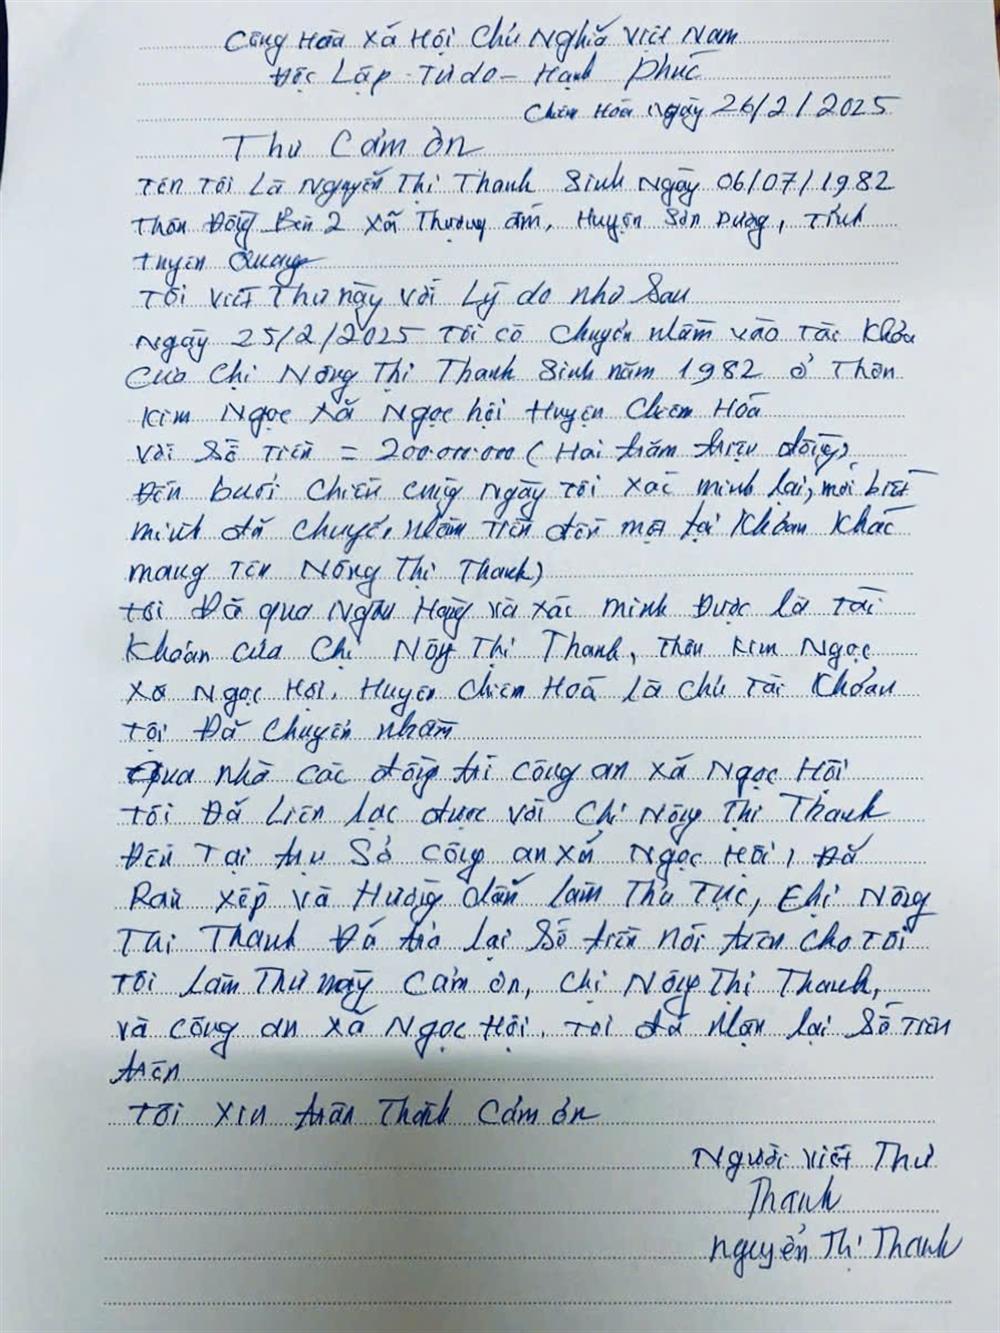 Cộng Hoà Xá Hội Chủ Nghĩã Việt Nam
Độc Lập - Tự do - Hạnh Phúc
Chiêm Hoá Ngày 26/2/2025
Thư Cảm ơn
Tên Tôi Là Nguyễn Thị Thanh Sinh Ngày 06/07/1982
Thôn Đồng Bèn 2 Xã Thượng ấm, Huyện Sơn Dương, Tỉnh
Tuyên Quang
Tôi viết Thư này với Lý do như Sau
Ngày 25/2/2025 Tôi có chuyển nhầm vào Tài Khỏan
Của Chị Nông Thị Thanh Sinh năm 1982 ở Thôn
Kim Ngọc Xã Ngọc hội Huyện Chiêm Hóá
Với Số Tiền = 200.000.000 (Hai trăm triệu đồng)
Đến buổi chiều cùng Ngày Tôi xác minh lại, mới biết
mình đã chuyển nhầm tiền đến một tại Khỏan Khác
mang Tên Nông Thị Thanh)
Tôi Đã qua Ngân Hàng và xác minh Được là Tài
Khỏan của Chị Nông Thị Thanh, Thôn Kim Ngọc
Xã Ngọc Hội, Huyện Chiêm Hoá là chủ Tài Khỏan
Tội Đã chuyển nhầm
Qua nhờ các đồng trí công an xã Ngọc Hội
Tôi Đã Liên Lạc được với Chị Nông Thị Thanh
Đến Tại trụ Sở công an xã Ngọc Hội, Đã
xếp và Hướng dẫn làm Thủ Tục, Chị Nông
Thị Thanh Đã trả lại Số tiền nói trên cho Tôi
Tôi Làm Thư này Cảm ơn, Chị Nông Thị Thanh,
và công an xã Ngọc Hội. Tôi đã Nhận lại Số Tiền
trên
Tôi xin trân Thành Cảm ơn
Người viết Thư
Thanh
Nguyễn Thị Thanh